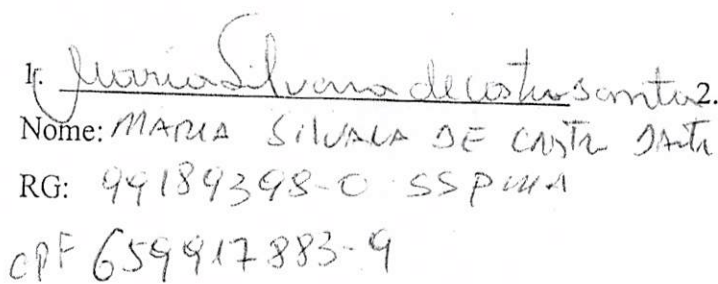 1. Maria Silvana de Castro Santos 2.
Nome: MARIA SILVANA DE CASTR SANTS
RG: 99189398-0 SSPMA
CPF 659917883-9